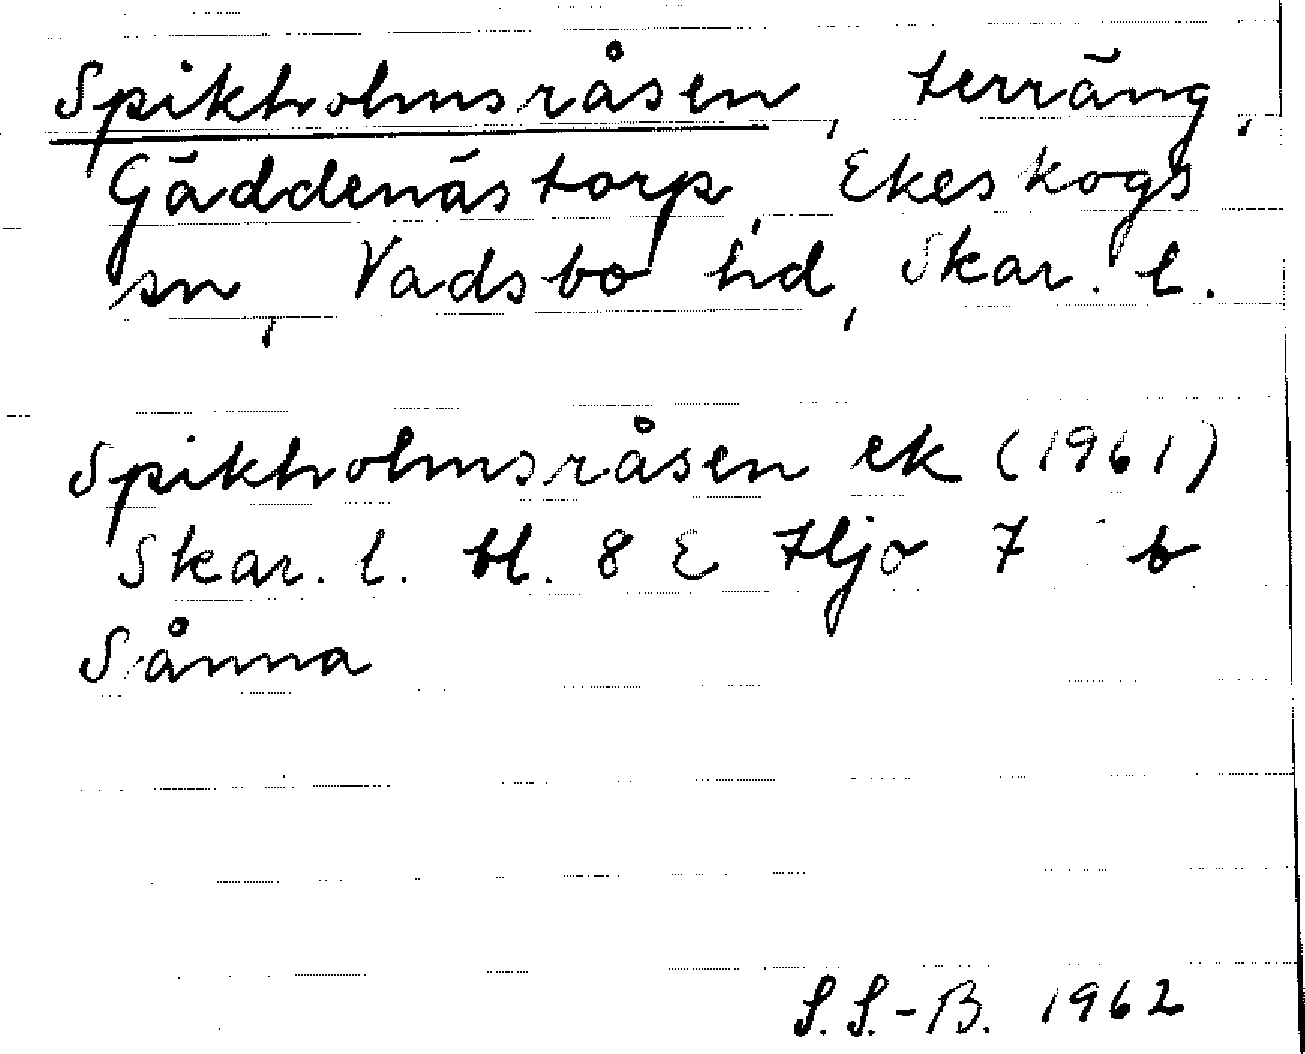 Spikholmsråsen, terräng,
Gäddenästorp, Ekeskogs
sn, Vadsbo hd, Skar. l.
Spikholmsråsen ek (1961)
Skar. l. bl. 8 E Hjo 7 b
Sånna
S. S.-B. 1962